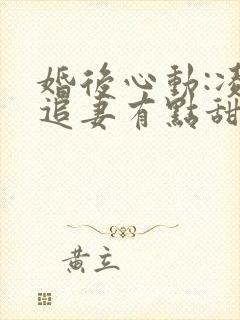 婚後心動:
追妻有點甜
黃立